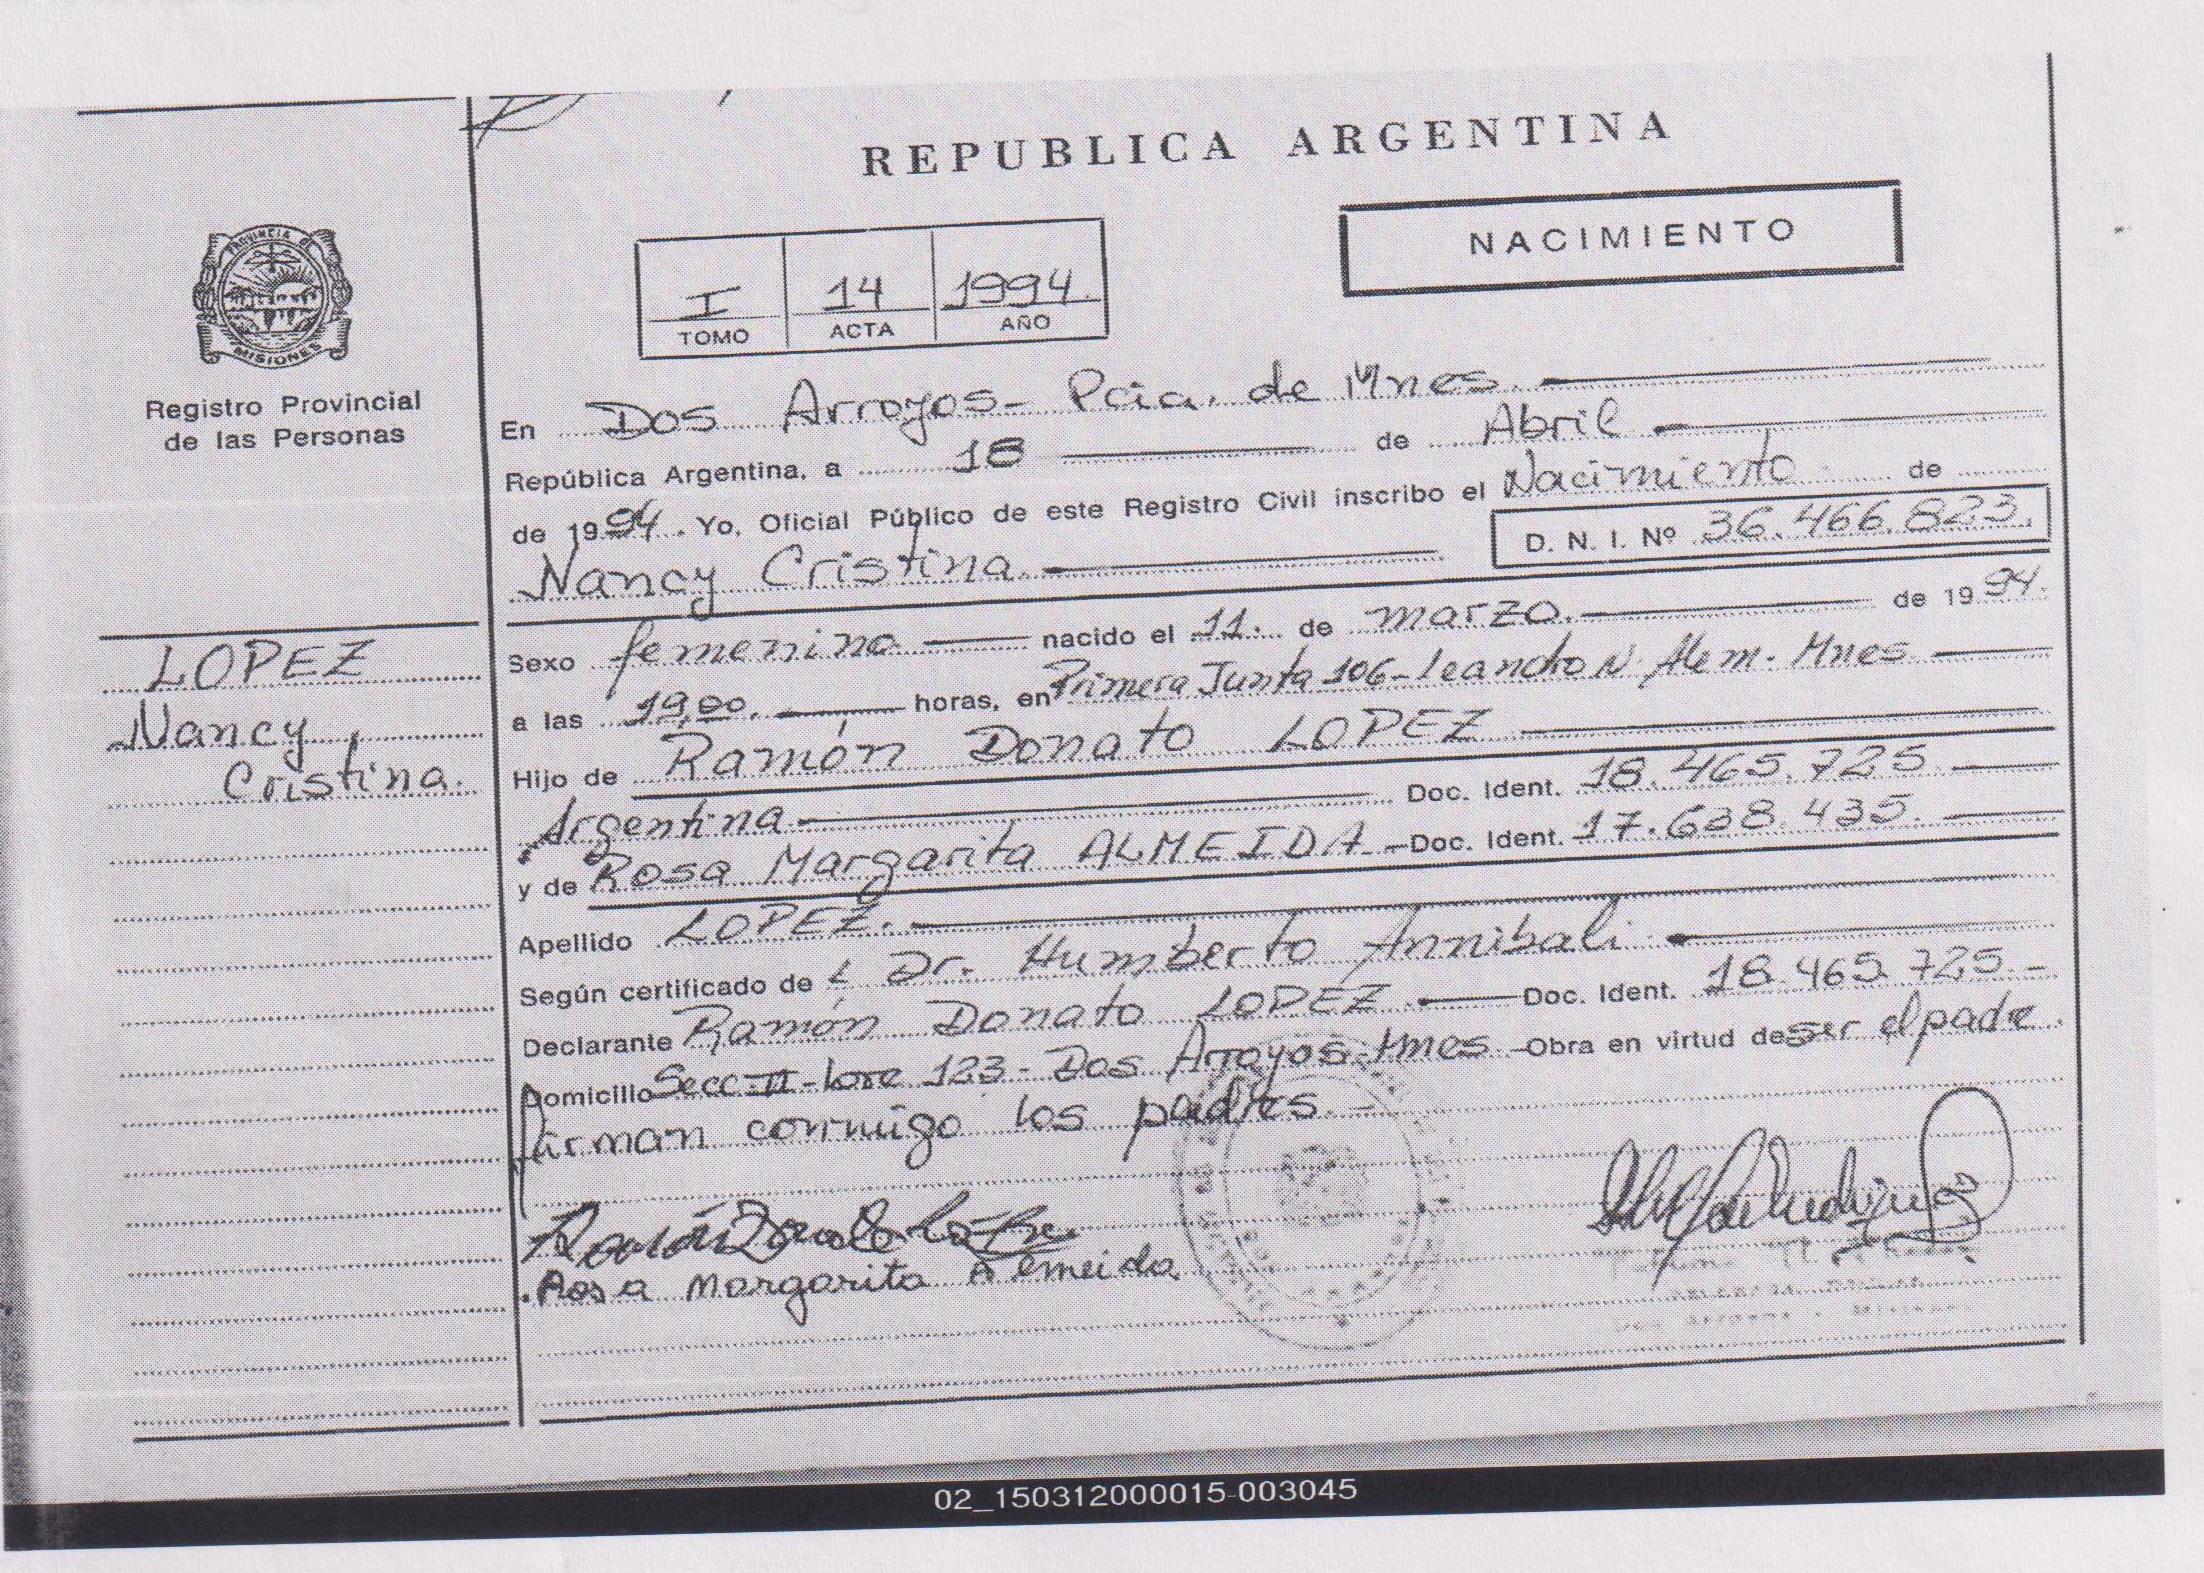 REPUBLICA ARGENTINA
NACIMIENTO
I 14 1994.
TOMO ACTA AÑO
PROVINCIA DE
MISIONES
Registro Provincial
de las Personas
LOPEZ
Nancy
Cristina.
En Dos Arroyos- Pcia. de Mnes.
República Argentina, a 18 de Abril
de 1994. Yo, Oficial Público de este Registro Civil inscribo el Nacimiento de
Nancy Cristina. D. N. I. Nº 36.466.823.
Sexo femenino nacido el 11. de marzo. de 1994.
a las 19,00. horas, en Primera Junta 106- Leandro N. Alem. Mnes
Hijo de Ramón Donato LOPEZ
Argentina Doc. Ident. 18.465.725
y de Rosa Margarita ALMEIDA Doc. Ident. 17.638.435.
Apellido LOPEZ.
Según certificado de Dr. Humberto Annibali
Declarante Ramón Donato LOPEZ Doc. Ident. 18.465.725.-
Domicilio Secc. II - Lote 123 - Dos Arroyos- Mnes Obra en virtud de ser el padre.
firman conmigo los padres.-
Rosa Margarita Almeida
02_150312000015-003045